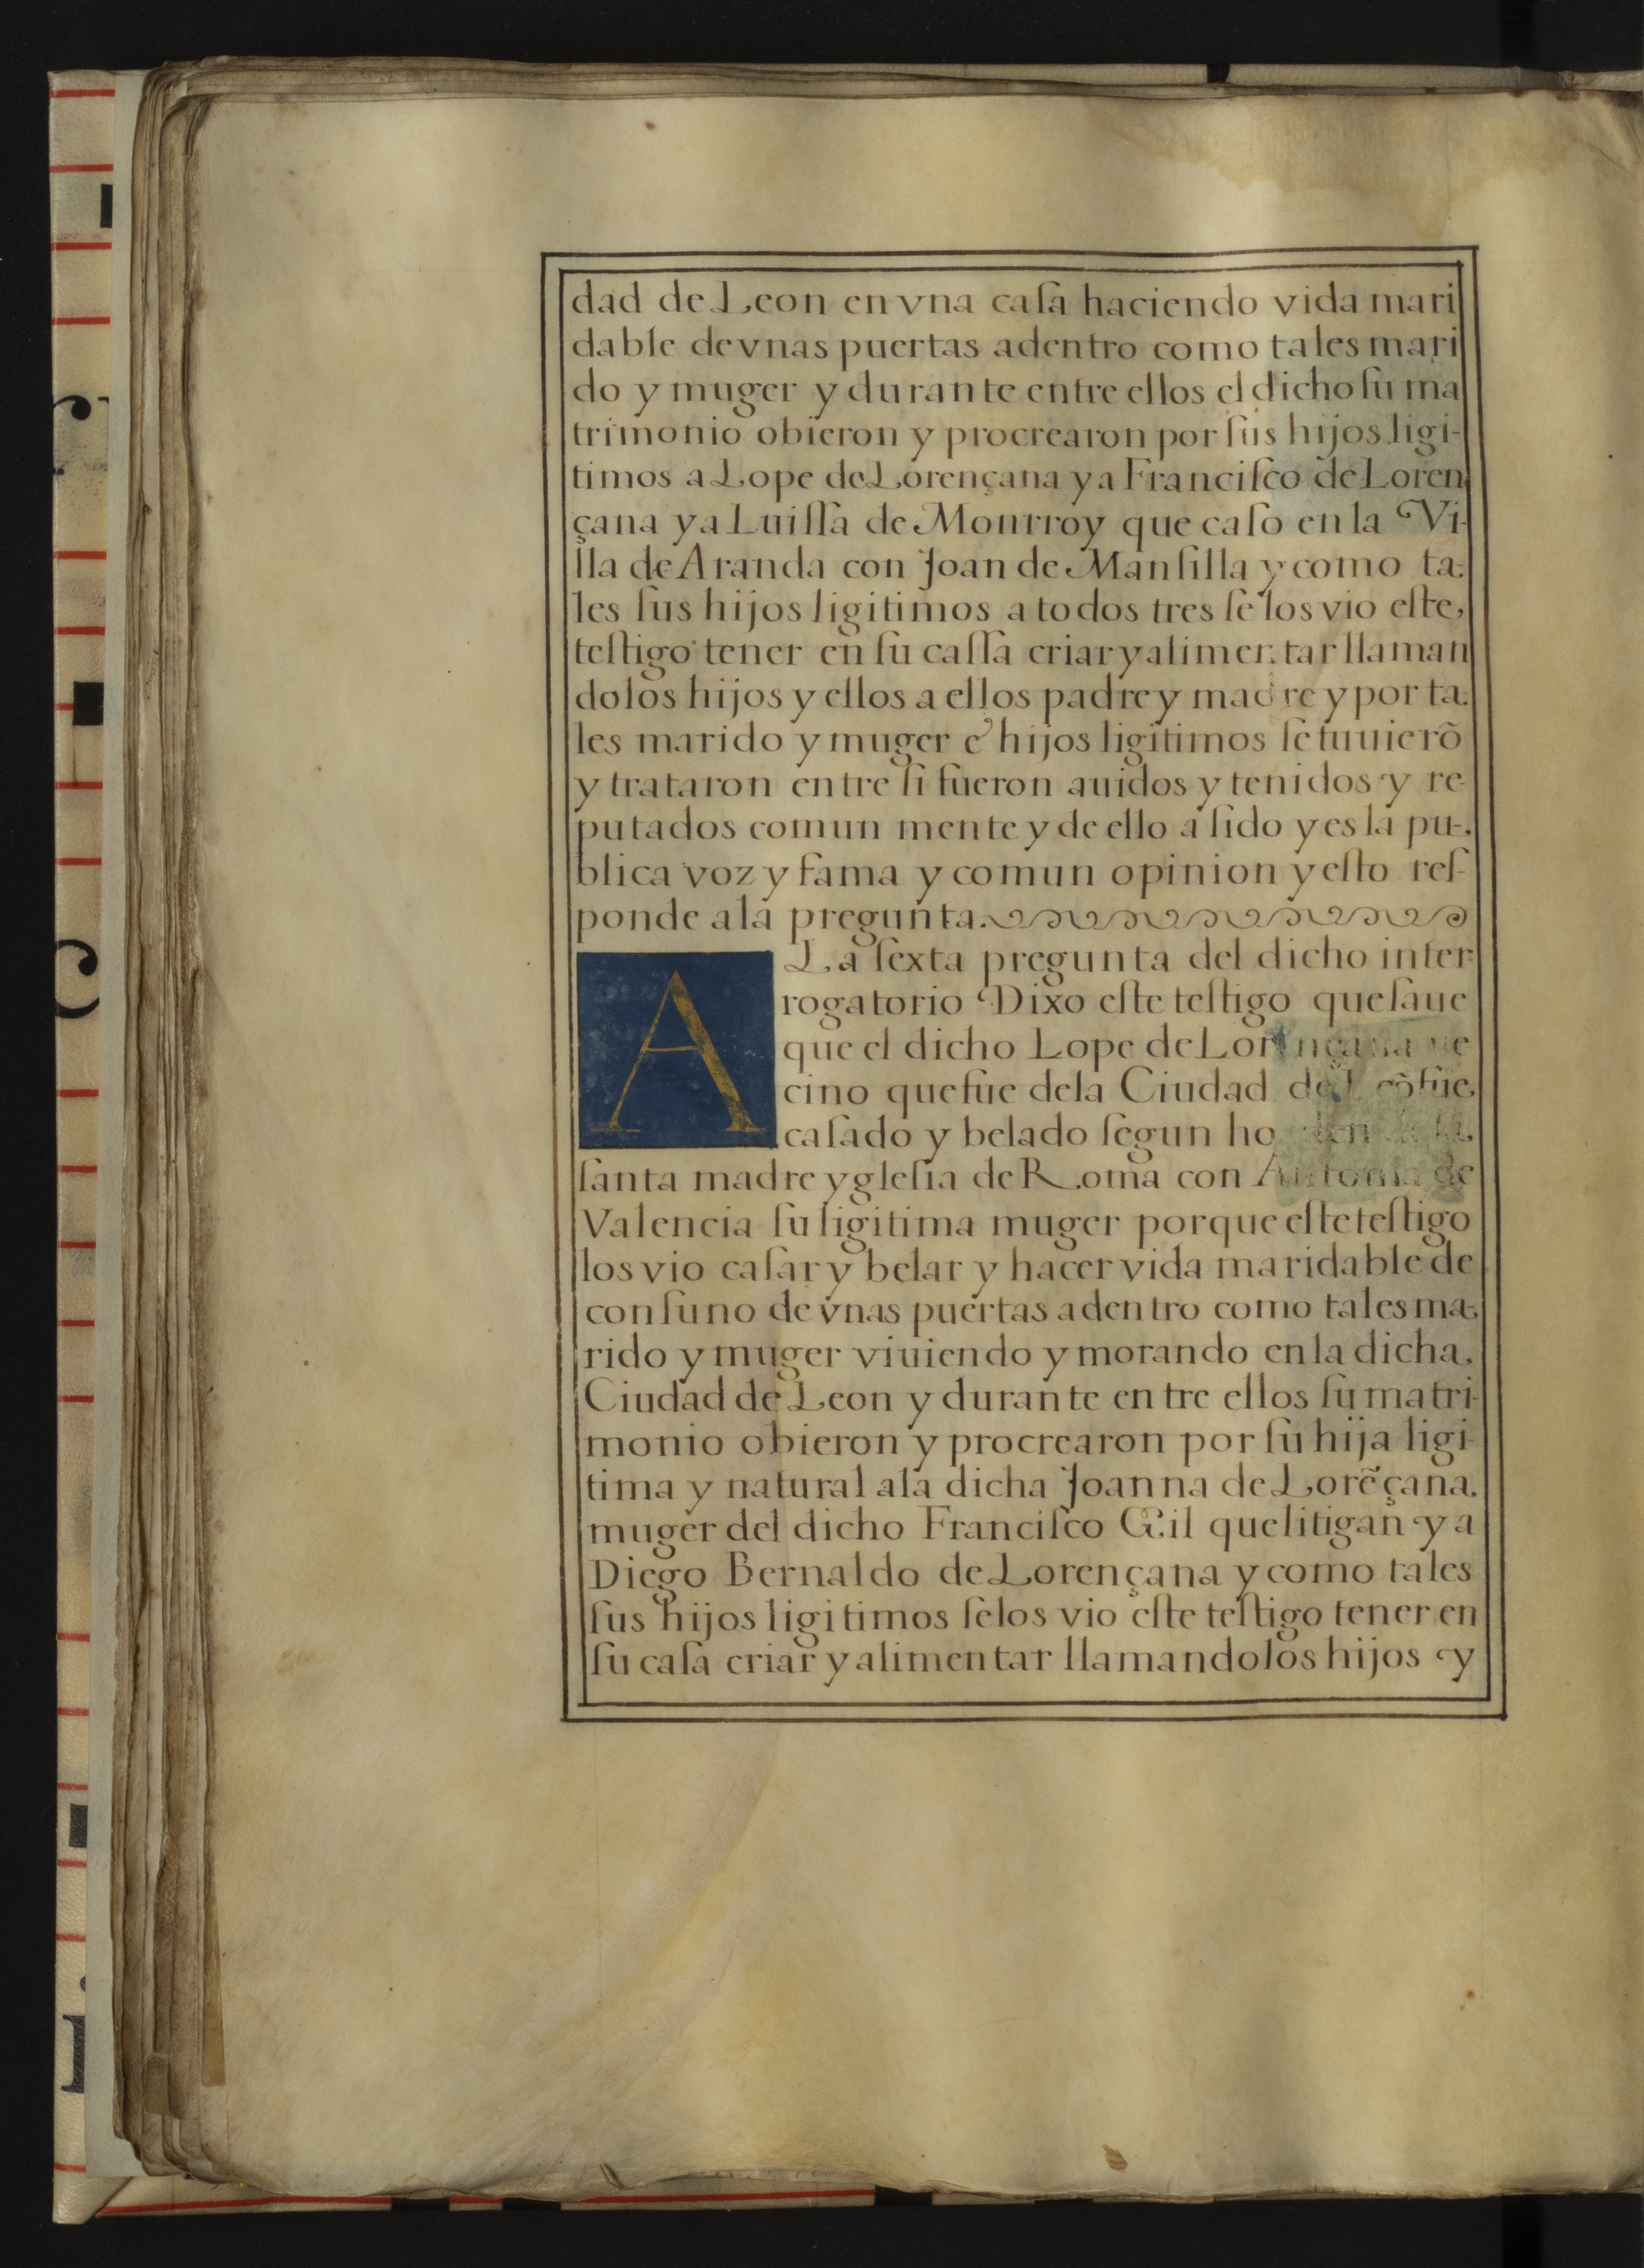 dad de Leon en vna caſa haciendo vida mari
dable de vnas puertas adentro como tales mari
do y muger y durante entre ellos el dicho ſu ma
trimonio obieron y procrearon por ſus hijos ligi-
timos a Lope de Lorençana y a Franciſco de Loren
çana y a Luiſſa de Monrroy que caſo en la Vi-
lla de Aranda con Joan de Manſilla y como ta.
les ſus hijos ligitimos a todos tres ſe los vio eſte,
teſtigo tener en ſu caſſa criar y alimentar llaman
dolos hijos y ellos a ellos padre y madre y por ta.
les marido y muger e hijos ligitimos ſe tuuierõ
y trataron entre ſi fueron auidos y tenidos y re-
putados comun mente y de ello a ſido y es la pu-.
blica voz y fama y comun opinion y eſto reſ-
ponde a la pregunta.
A La ſexta pregunta del dicho inter-
rogatorio Dixo eſte teſtigo que ſaue
que el dicho Lope de Lorençana ve
cino que fue de la Ciudad de Leõ fue,
caſado y belado ſegun horden
ſanta madre ygleſia de Roma con Antonia de
Valencia ſu ligitima muger porque eſte teſtigo
los vio caſar y belar y hacer vida maridable de
conſuno de vnas puertas adentro como tales ma-
rido y muger viuiendo y morando en la dicha.
Ciudad de Leon y durante entre ellos ſu matri-
monio obieron y procrearon por ſu hija ligi-
tima y natural a la dicha Joanna de Lorẽçana.
muger del dicho Franciſco Gil que litigan y a
Diego Bernaldo de Lorençana y como tales
ſus hijos ligitimos ſe los vio eſte teſtigo tener en
ſu caſa criar y alimentar llamandolos hijos y